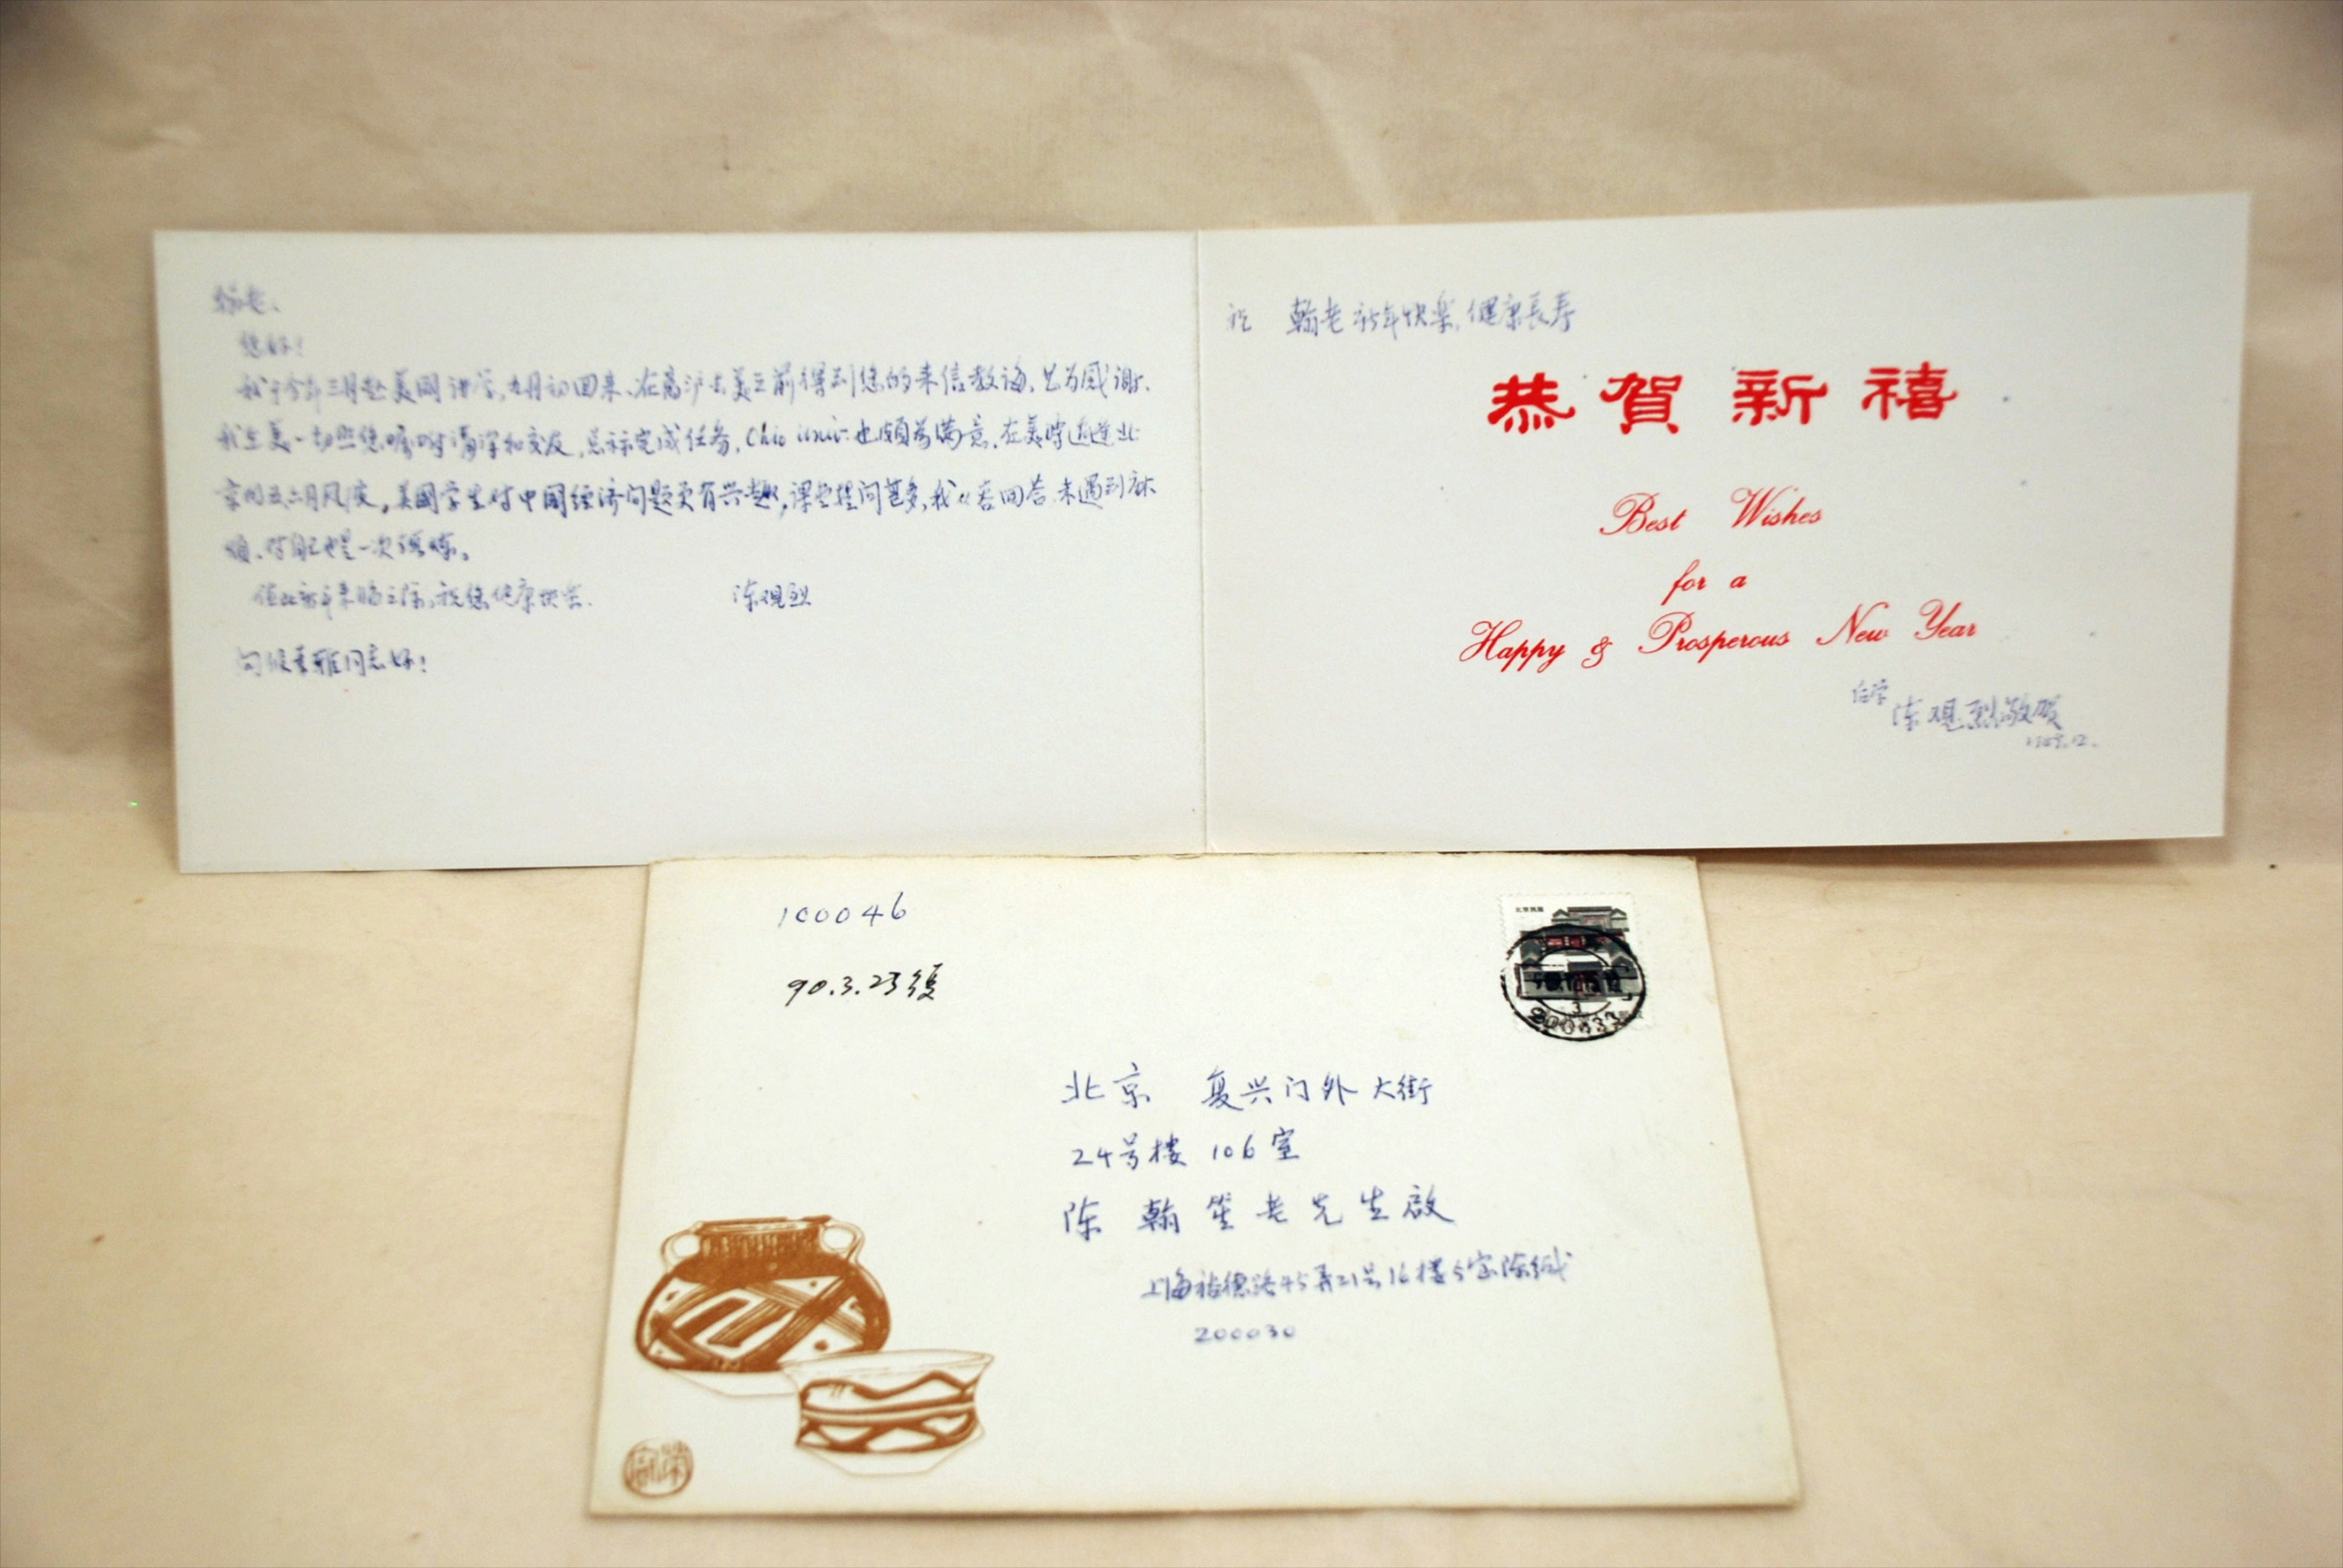 翰老、
您好！
我于今年三月赴美国讲学，九月初回来、在离沪去美之前得到您的来信教诲，甚为感谢、
我在美一切照您嘱咐讲学和交友，总算完成任务，Ohio Univ. 也颇为满意、在美时适逢北
京的五、六月风波，美国学生对中国经济问题更有兴趣，课堂提问甚多，我从容回答，未遇到麻
烦、对自己也是一次锻炼。
值此新年来临之际，祝您健康快乐、 陈观烈
问候 同志好！
祝 翰老新年快樂，健康長寿
恭賀新禧
Best Wishes
for a
Happy & Prosperous New Year
后学 陈观烈敬贺
1989.12.
100046
90.3.23復
北京民居
北京 复兴门外大街
24号楼 106室
陈翰笙老先生啟
上海裕德路45弄21号16楼5室陈缄
200030